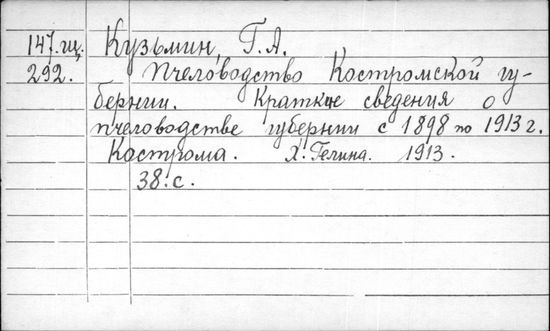 147.щ. Кузьмин, Г.А.
292. Пчеловодство Костромской гу-
бернии. Краткие сведения о
пчеловодстве губернии с 1898 по 1913 г.
Кострома. Х. Гелина. 1913.
38 с.